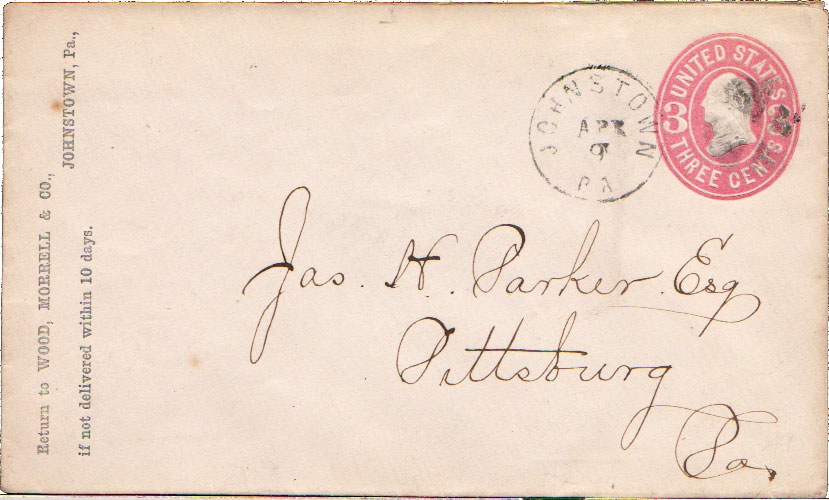 Return to WOOD, MORRELL & CO.,
JOHNSTOWN, Pa.,
if not delivered within 10 days.
JOHNSTOWN
APR
9
PA
UNITED STATES
3 3
THREE CENTS
Jas. H. Parker Esq
Pittsburg
Pa.